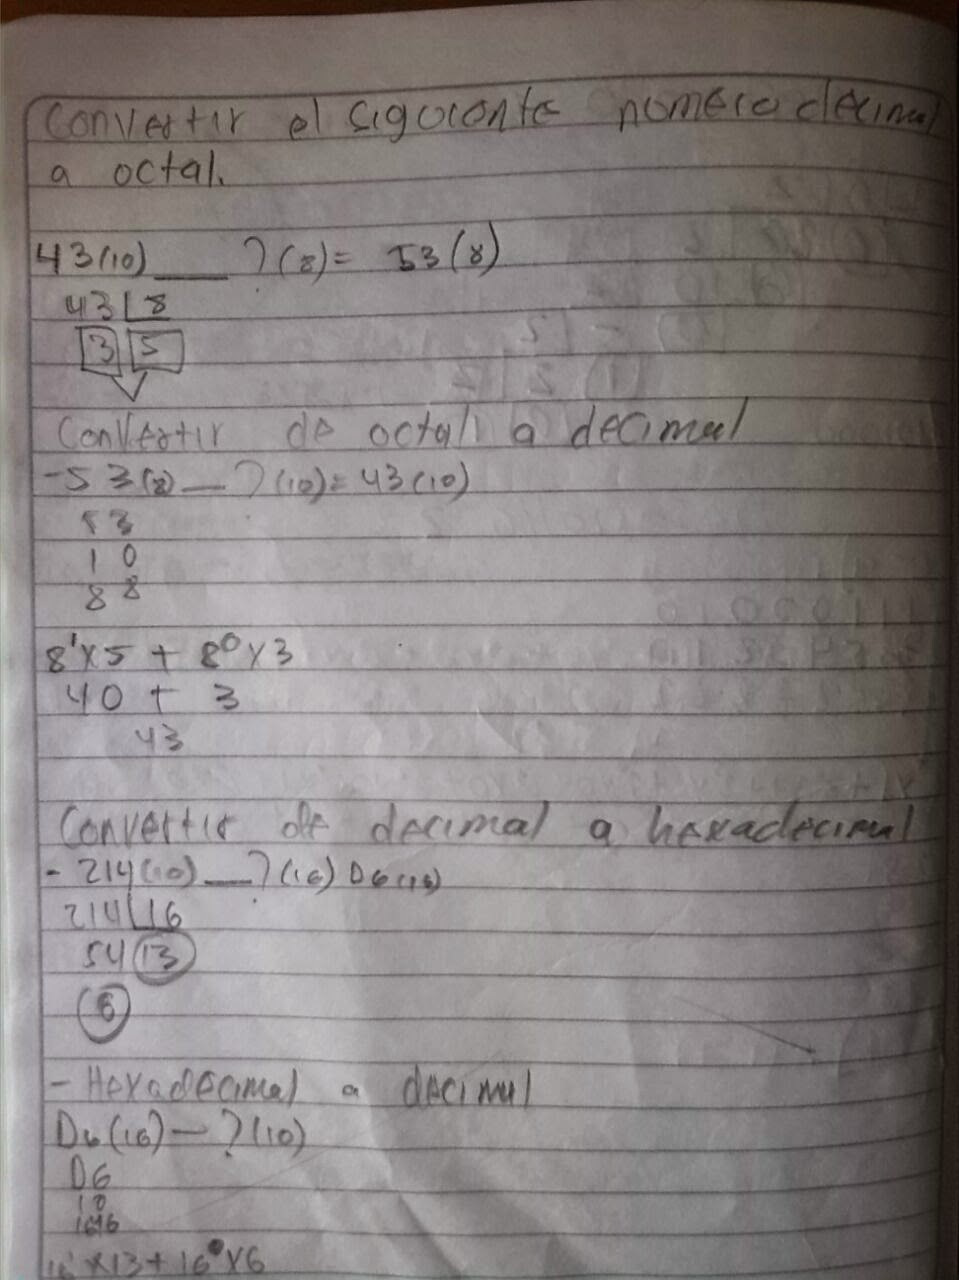 Convertir el siguiente numero decimal
a octal.
43(10) ___ ?(8)= 53(8)
43 8
3 5
Convertir de octal a decimal
-53(8) __ ?(10)= 43(10)
53
1 0
8 8
8¹x5 + 8⁰x3
40 + 3
43
Convertir de decimal a hexadecimal
- 214(10) __ ?(16) D6(16)
214 16
54 13
6
- Hexadecimal a decimal
D6(16) — ?(10)
D6
1 0
16 16
16¹x13 + 16⁰x6